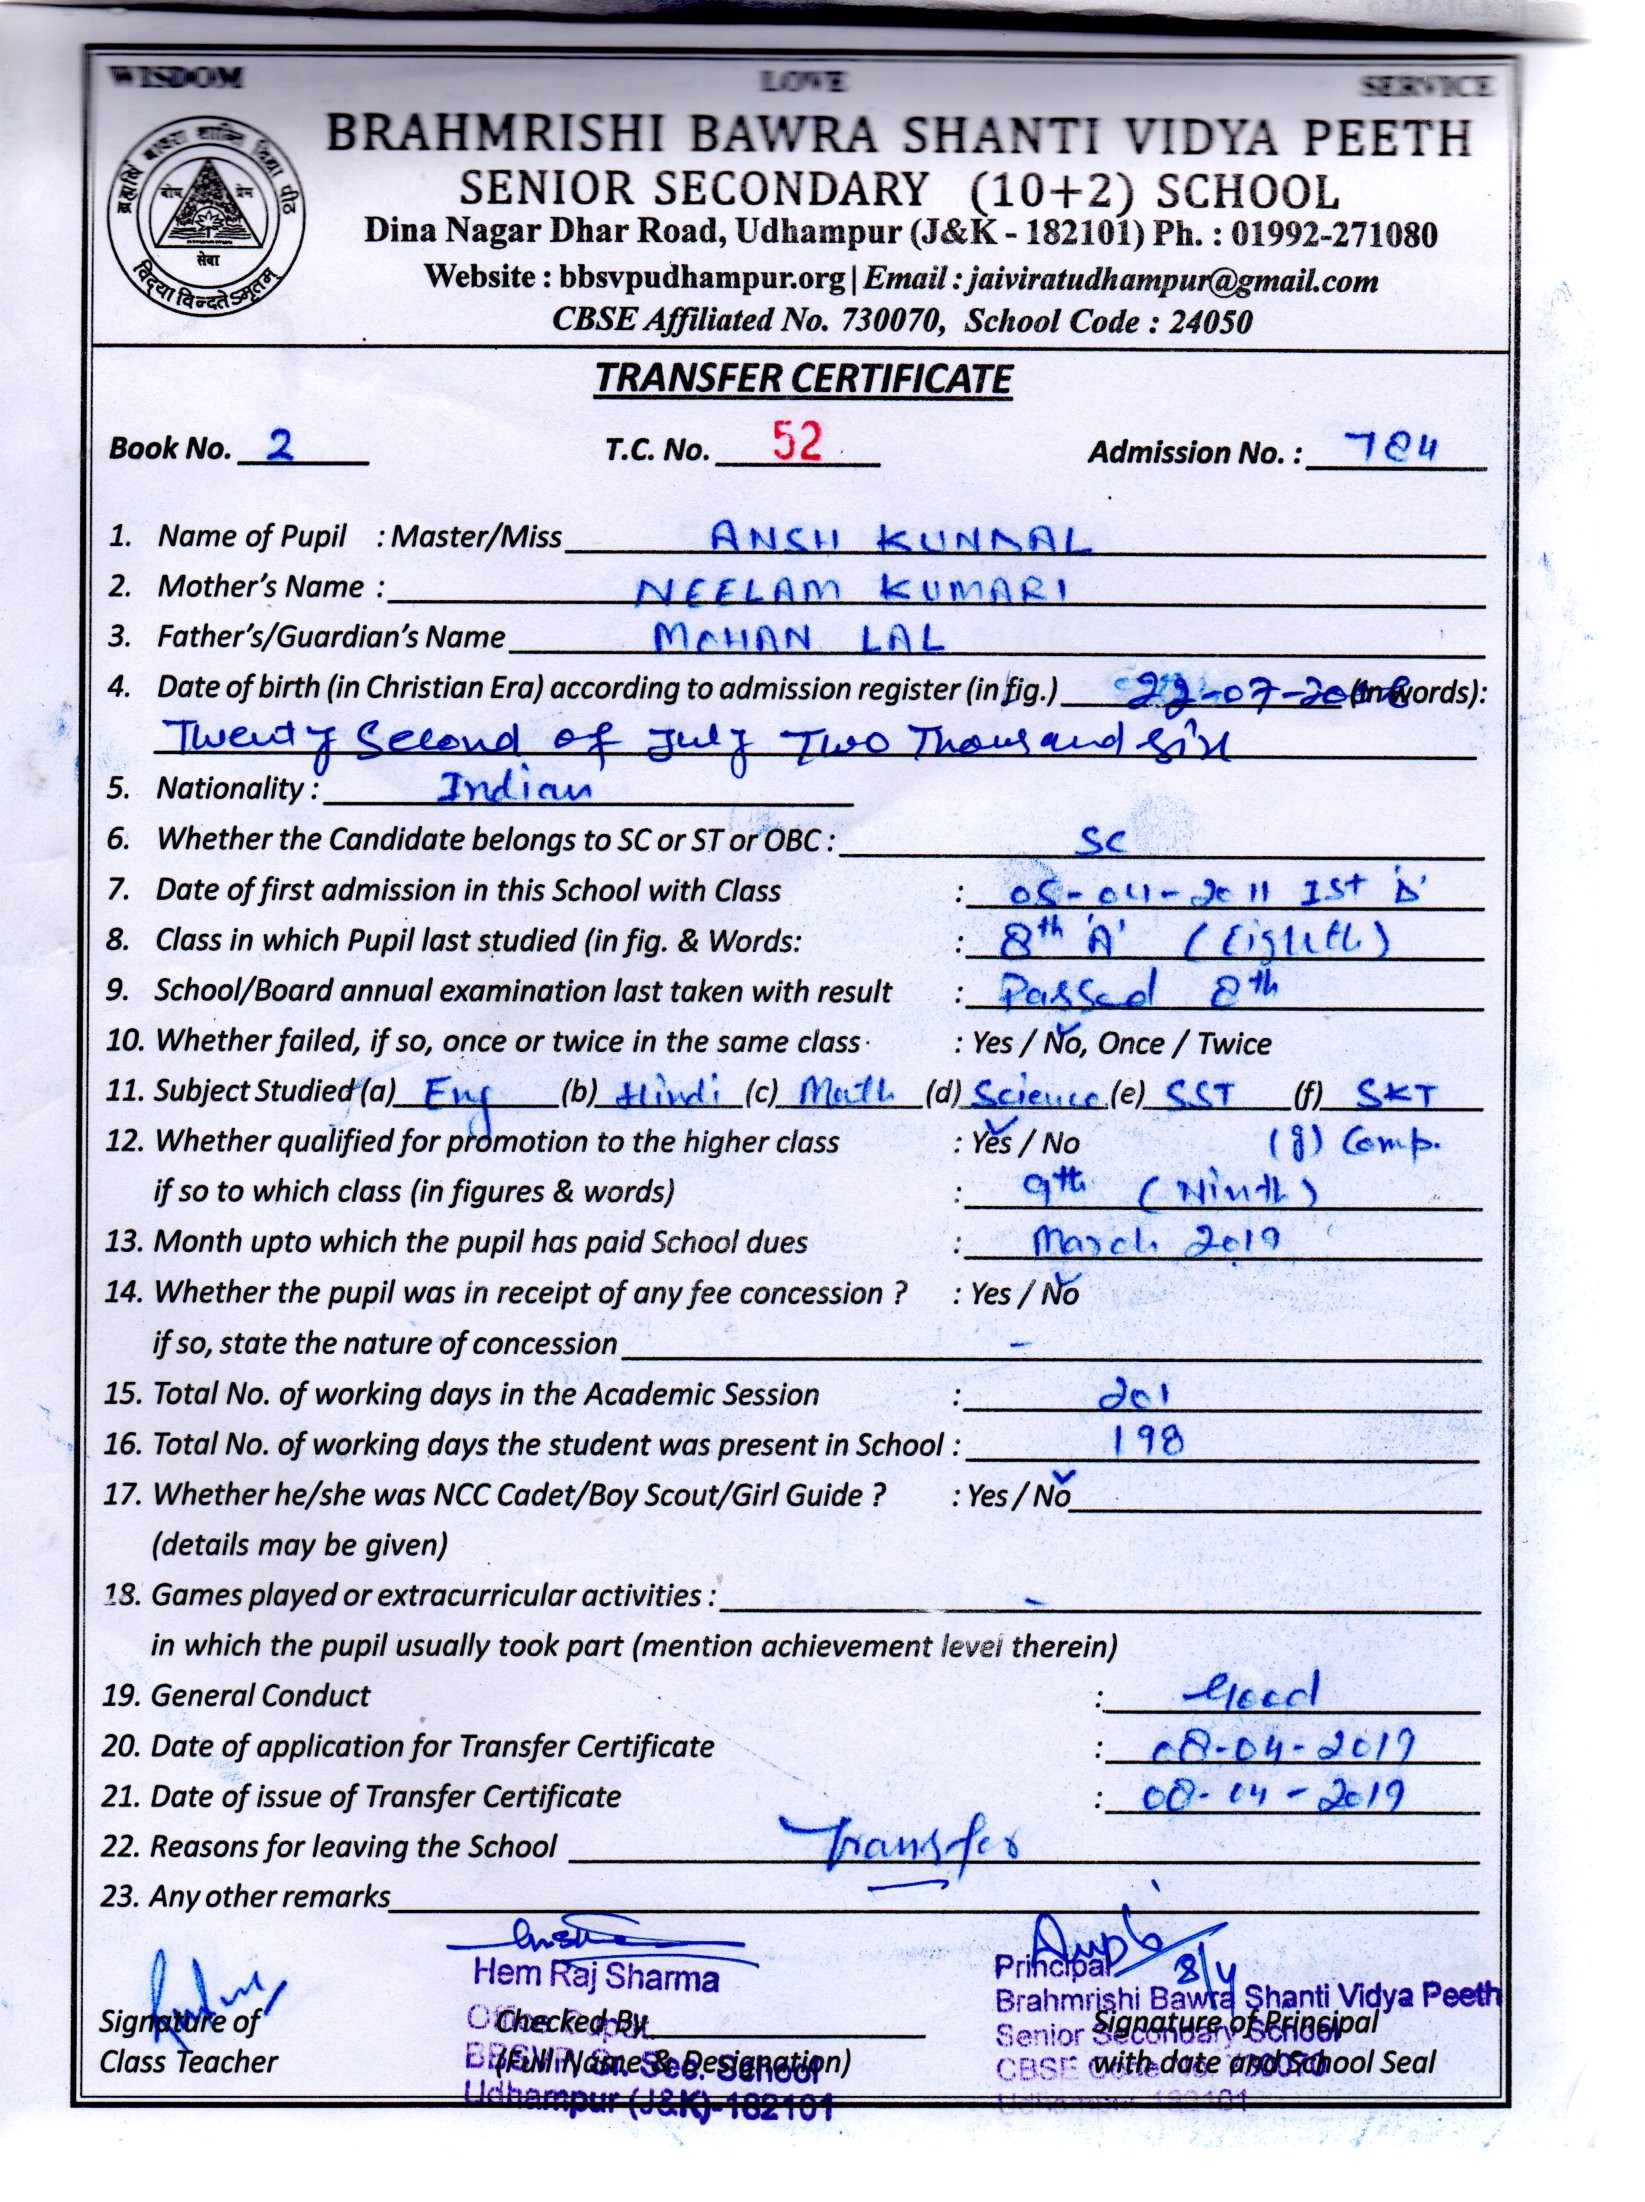 WISDOM LOVE SERVICE
BRAHMRISHI BAWRA SHANTI VIDYA PEETH
SENIOR SECONDARY (10+2) SCHOOL
Dina Nagar Dhar Road, Udhampur (J&K - 182101) Ph. : 01992-271080
Website : bbsvpudhampur.org | Email : jaiviratudhampur@gmail.com
CBSE Affiliated No. 730070, School Code : 24050
ब्रह्मर्षि बावरा शान्ति विद्या पीठ
प्रेम
सेवा
विद्या विन्दतेऽमृतम्
TRANSFER CERTIFICATE
Book No. 2 T.C. No. 52 Admission No. : 784
1. Name of Pupil : Master/Miss ANSH KUNDAL
2. Mother's Name : NEELAM KUMARI
3. Father's/Guardian's Name MOHAN LAL
4. Date of birth (in Christian Era) according to admission register (in fig.) 22-07-2006 (in words):
Twenty Second of July Two Thousand Six
5. Nationality : Indian
6. Whether the Candidate belongs to SC or ST or OBC : SC
7. Date of first admission in this School with Class : 05-04-2011 Ist
8. Class in which Pupil last studied (in fig. & Words: : 8th 'A' (Eighth)
9. School/Board annual examination last taken with result : Passed 8th
10. Whether failed, if so, once or twice in the same class : Yes / No, Once / Twice
11. Subject Studied (a) Eng (b) Hindi (c) Math (d) Science (e) SST (f) SKT
12. Whether qualified for promotion to the higher class : Yes / No (g) Comp.
if so to which class (in figures & words) : 9th (Ninth)
13. Month upto which the pupil has paid School dues : March 2019
14. Whether the pupil was in receipt of any fee concession ? : Yes / No
if so, state the nature of concession -
15. Total No. of working days in the Academic Session : 201
16. Total No. of working days the student was present in School : 198
17. Whether he/she was NCC Cadet/Boy Scout/Girl Guide ? : Yes / No
(details may be given)
18. Games played or extracurricular activities : -
in which the pupil usually took part (mention achievement level therein)
19. General Conduct : Good
20. Date of application for Transfer Certificate : 08-04-2019
21. Date of issue of Transfer Certificate : 08-04-2019
22. Reasons for leaving the School Transfer
23. Any other remarks
Hem Raj Sharma
Principal 8/4
Brahmrishi Bawra Shanti Vidya Peeth
Senior Secondary School
Signature of Checked By Signature of Principal
Class Teacher (Full Name & Designation) with date and School Seal
Sr. Sec. School
CBSE
Udhampur (J&K)-182101
Udhampur 182101